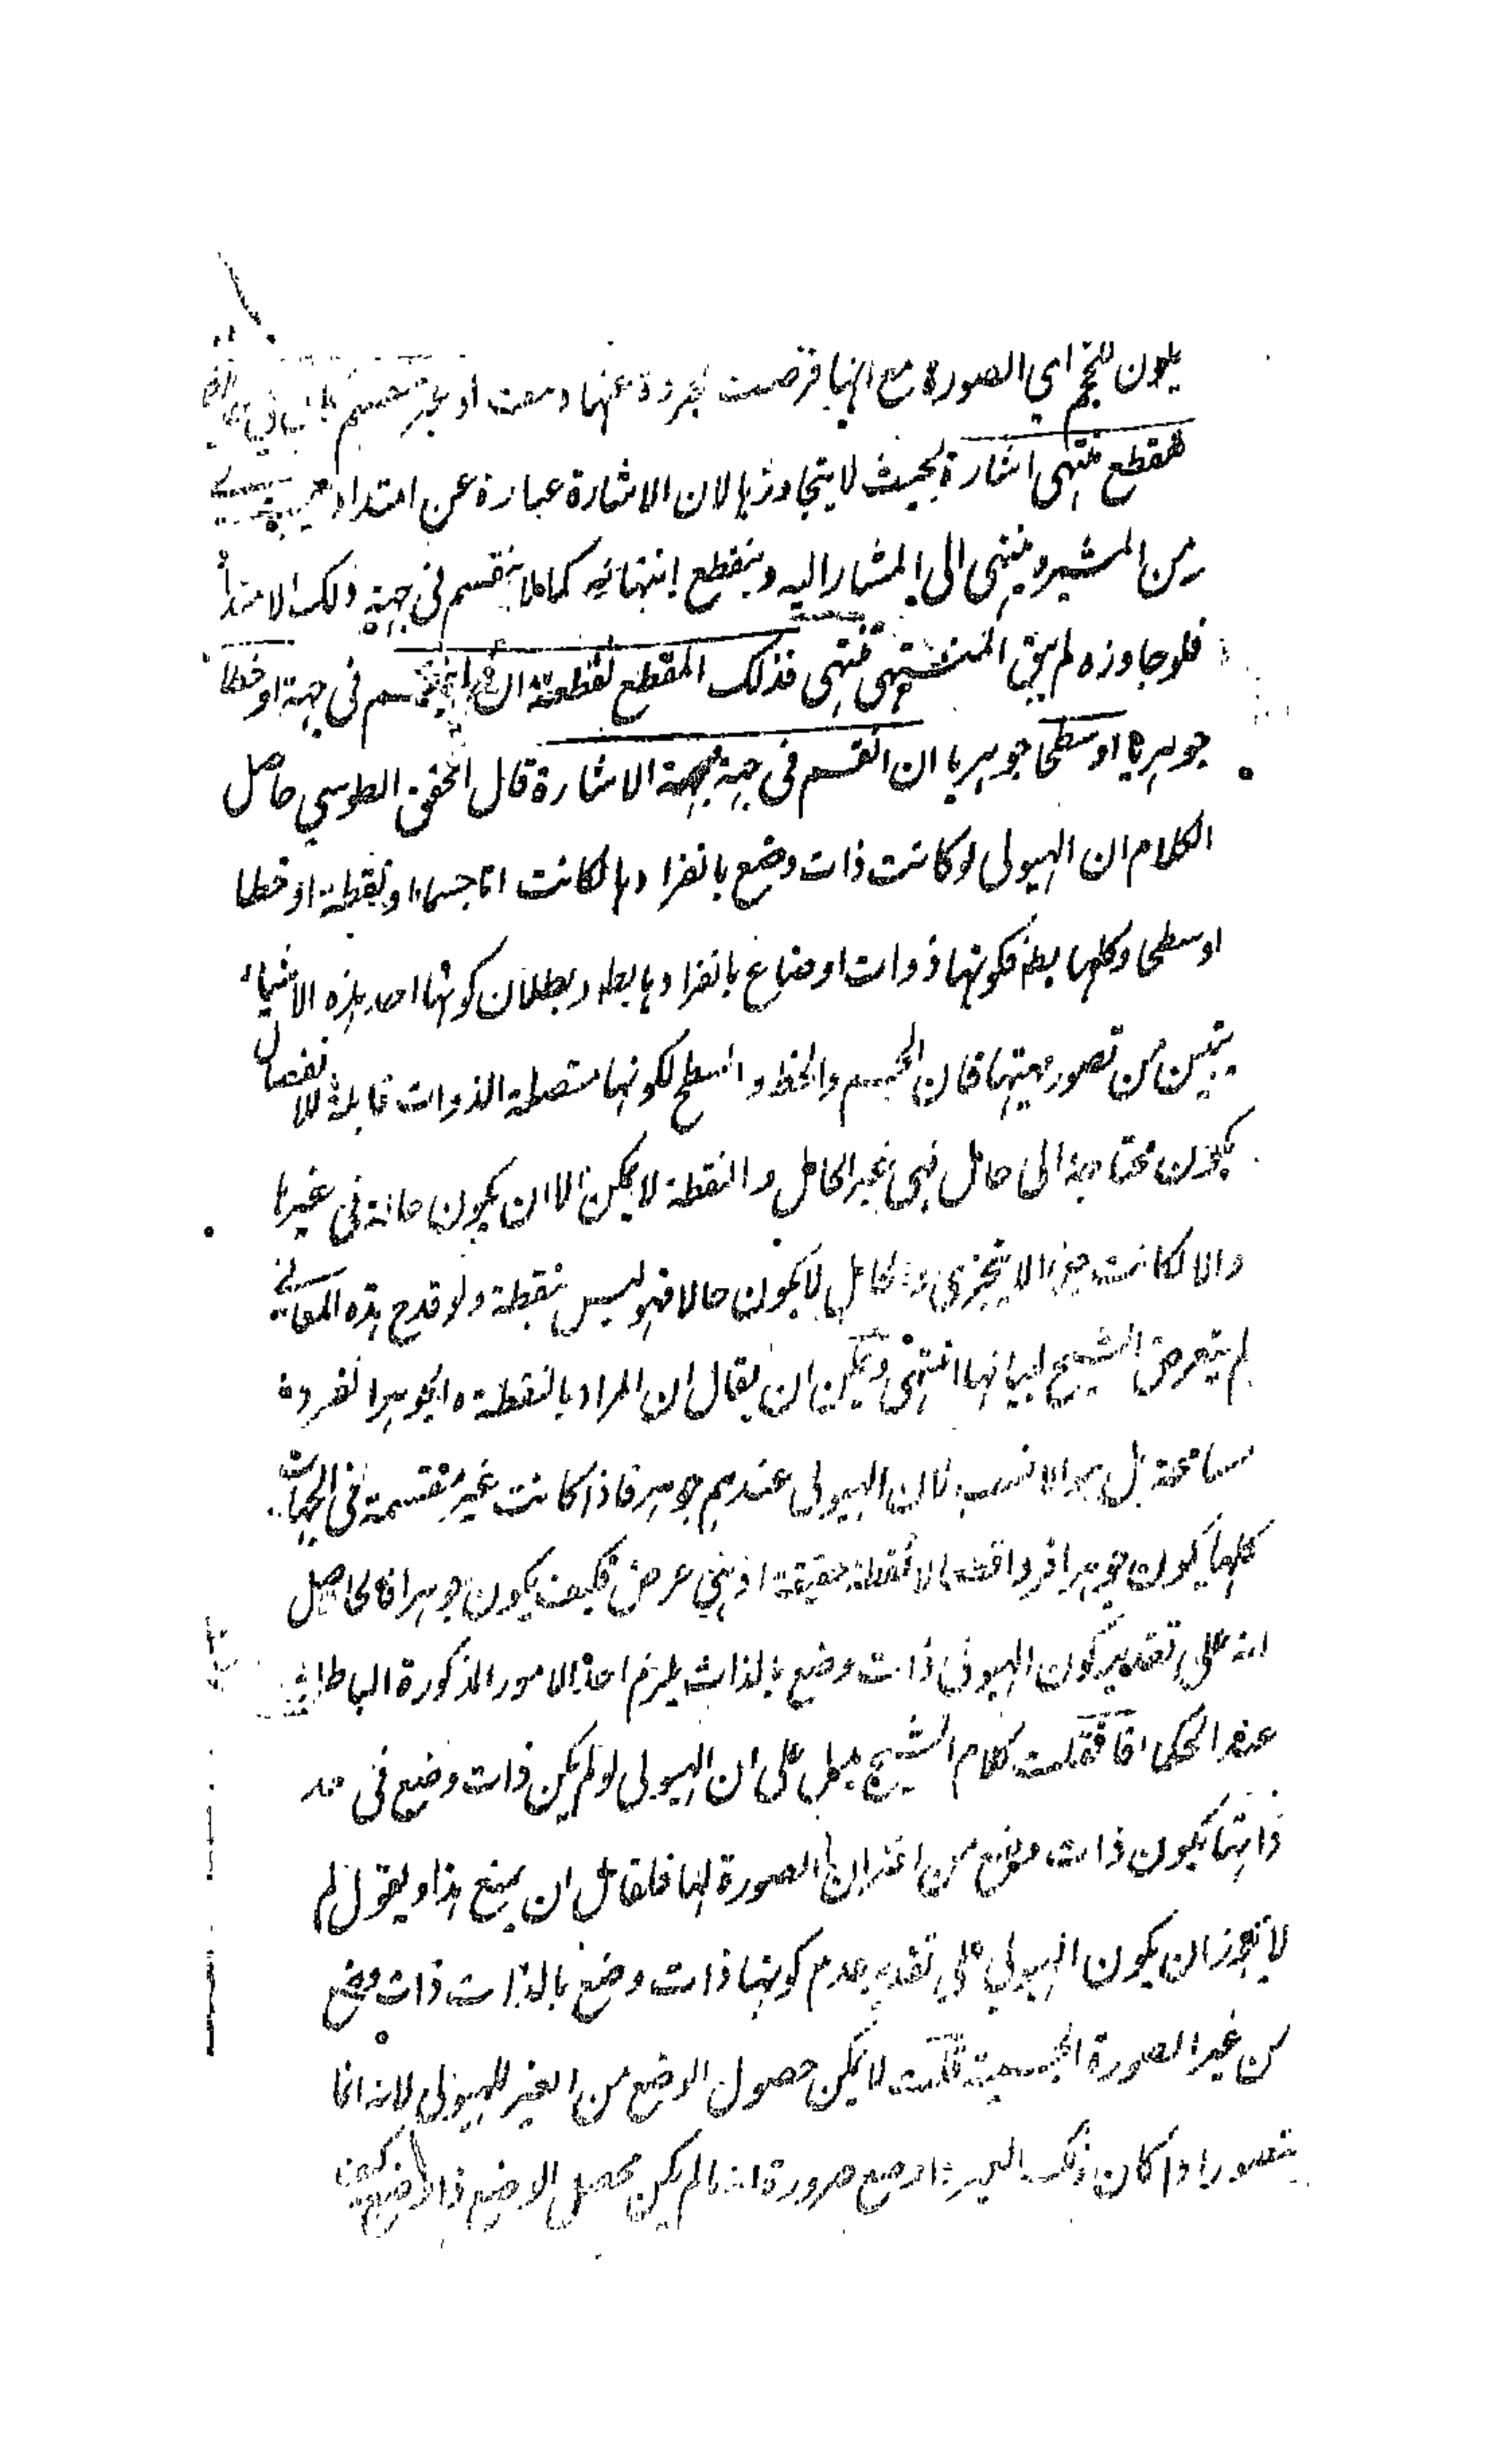 يكون للحجم اي الصورة مع انها فرضت مجردة عنها
مقطع منتهى اشارة بحيث لا يتجاوزها لان الاشارة عبارة عن امتداد
من المشير و ينتهي الى المشار اليه و ينقطع انتهائه كما لا ينقسم في جهة ذلك الامتداد
فلو جاوزه لم يبق المنتهى منتهى فذلك المقطع نقطة ان لم ينقسم في جهة او خطا
جوهريا او سطحا جوهريا ان انقسم في جهة الاشارة قال المحقق الطوسي حاصل
الكلام ان الهيولى لو كانت ذات وضع بانفرادها لكانت اما جسما او نقطة او خطا
او سطحا وكلها بط فكونها ذوات اوضاع بانفرادها بط و بطلان كونها احد هذه الاشياء
يتبين من تصور مهيتها فان الجسم والخط و السطح لكونها متصلة الذوات قابلة للانفصال
يكون محتاجة الى حامل فهي غير الحامل و النقطة لا يمكن الا ان يكون حالة في غيرها
والا لكانت جزءا لا يتجزى و الحامل لا يكون حالا فهو ليس بنقطة و لوضوح هذه المعاني
لم يتعرض الشيخ لبيانها انتهى و يمكن ان يقال ان المراد بالنقطة الجوهر الفرد
مسامحة بل هو الانسب لان الهيولى عندهم جوهر فاذا كانت غير منقسمة في الجهات
كلها يكون جوهرا فردا لا نقطة حقيقة اذ هي عرض فكيف يكون جوهرا فالحاصل
انه على تقدير كون الهيولى ذات وضع بالذات يلزم احد الامور المذكورة الباطلة
عند الحكماء فان قلت كلام الشيخ يدل على ان الهيولى لو لم يكن ذات وضع في حد
ذاتها يكون ذات وضع من اقتران الصورة لها فلقائل ان يمنع هذا و يقول لم
لا يجوز ان يكون الهيولى على تقدير عدم كونها ذات وضع بالذات ذات وضع
من غير الصورة الجسمية قلت لا يمكن حصول الوضع من الغير للهيولى لانه انما
يتصور اذا كان ذلك الغير ذا وضع ضرورة انه ما لم يكن محصل الوضع ذا وضع